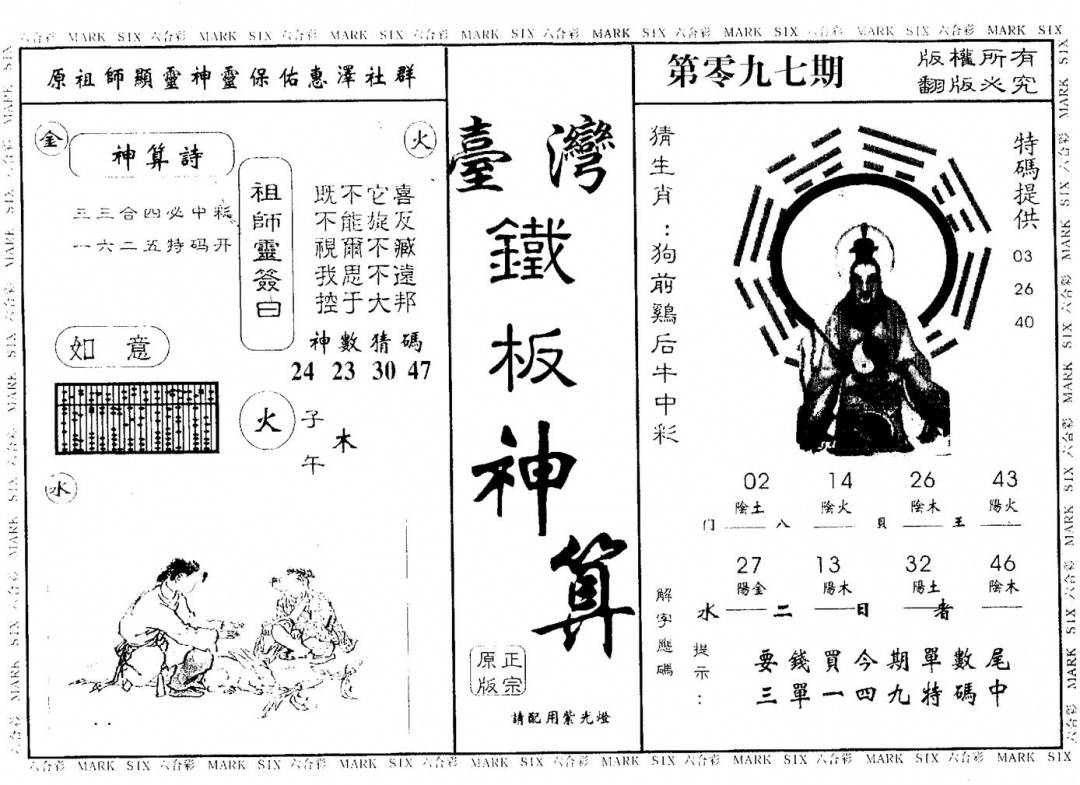 六合彩 MARK SIX 六合彩 MARK SIX 六合彩 MARK SIX 六合彩 MARK SIX 六合彩 MARK SIX 六合彩 MARK SIX 六合彩 MARK SIX 六合彩 MARK SIX
原祖師顯靈神靈保佑惠澤社群
金
神算詩
火
三三合四必中彩
一六二五特码开
祖師靈簽曰
既不它喜
不能旋反
視爾不臧
我思不遠
控于大邦
神數猜碼
24 23 30 47
如意
火
子午
木
水
臺灣
鐵板神算
正宗原版
請配用紫光燈
第零九七期
版權所有
翻版必究
猜生肖：狗前鷄后牛中彩
特碼提供
03
26
40
02 14 26 43
陰土 陰火 陰木 陽火
门 八 貝 王
27 13 32 46
陽金 陽木 陽土 陰木
水 二 日 者
解字應碼
提示：
要錢買今期單數尾
三單一四九特碼中
六合彩 MARK SIX 六合彩 MARK SIX 六合彩 MARK SIX 六合彩 MARK SIX 六合彩 MARK SIX 六合彩 MARK SIX 六合彩 MARK SIX 六合彩 MARK SIX